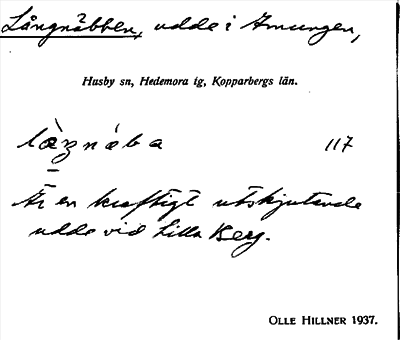 Långnäbben, udde i Amungen,
Husby sn, Hedemora tg, Kopparbergs län.
117
Är en kraftigt utskjutande
udde vid Lilla Berg.
OLLE HILLNER 1937.